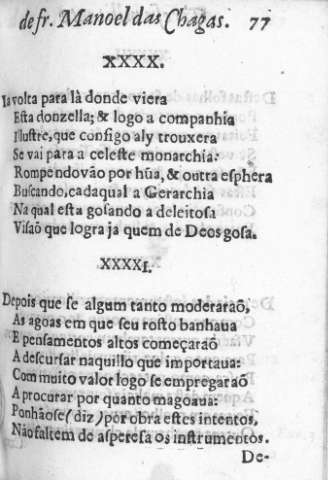 de fr. Manoel das Chagas. 77
XXXX.
Ia volta para là donde viera
Esta donzella; & logo a companhia
Illustre, que consigo aly trouxera
Se vai para a celeste monarchia:
Rompendo vão por hũa, & outra esphera
Buscando, cada qual a Gerarchia
Na qual esta gosando a deleitosa
Visaõ que logra ja quem de Deos gosa.
XXXXI.
Depois que se algum tanto moderaraõ,
As agoas em que seu rosto banhaua
E pensamentos altos começaraõ
A descursar naquillo que importaua:
Com muito valor logo se empregaraõ
A procurar por quanto magoaua:
Ponhãose (diz) por obra estes intentos,
Não faltem de asperesa os instrumentos.
De-